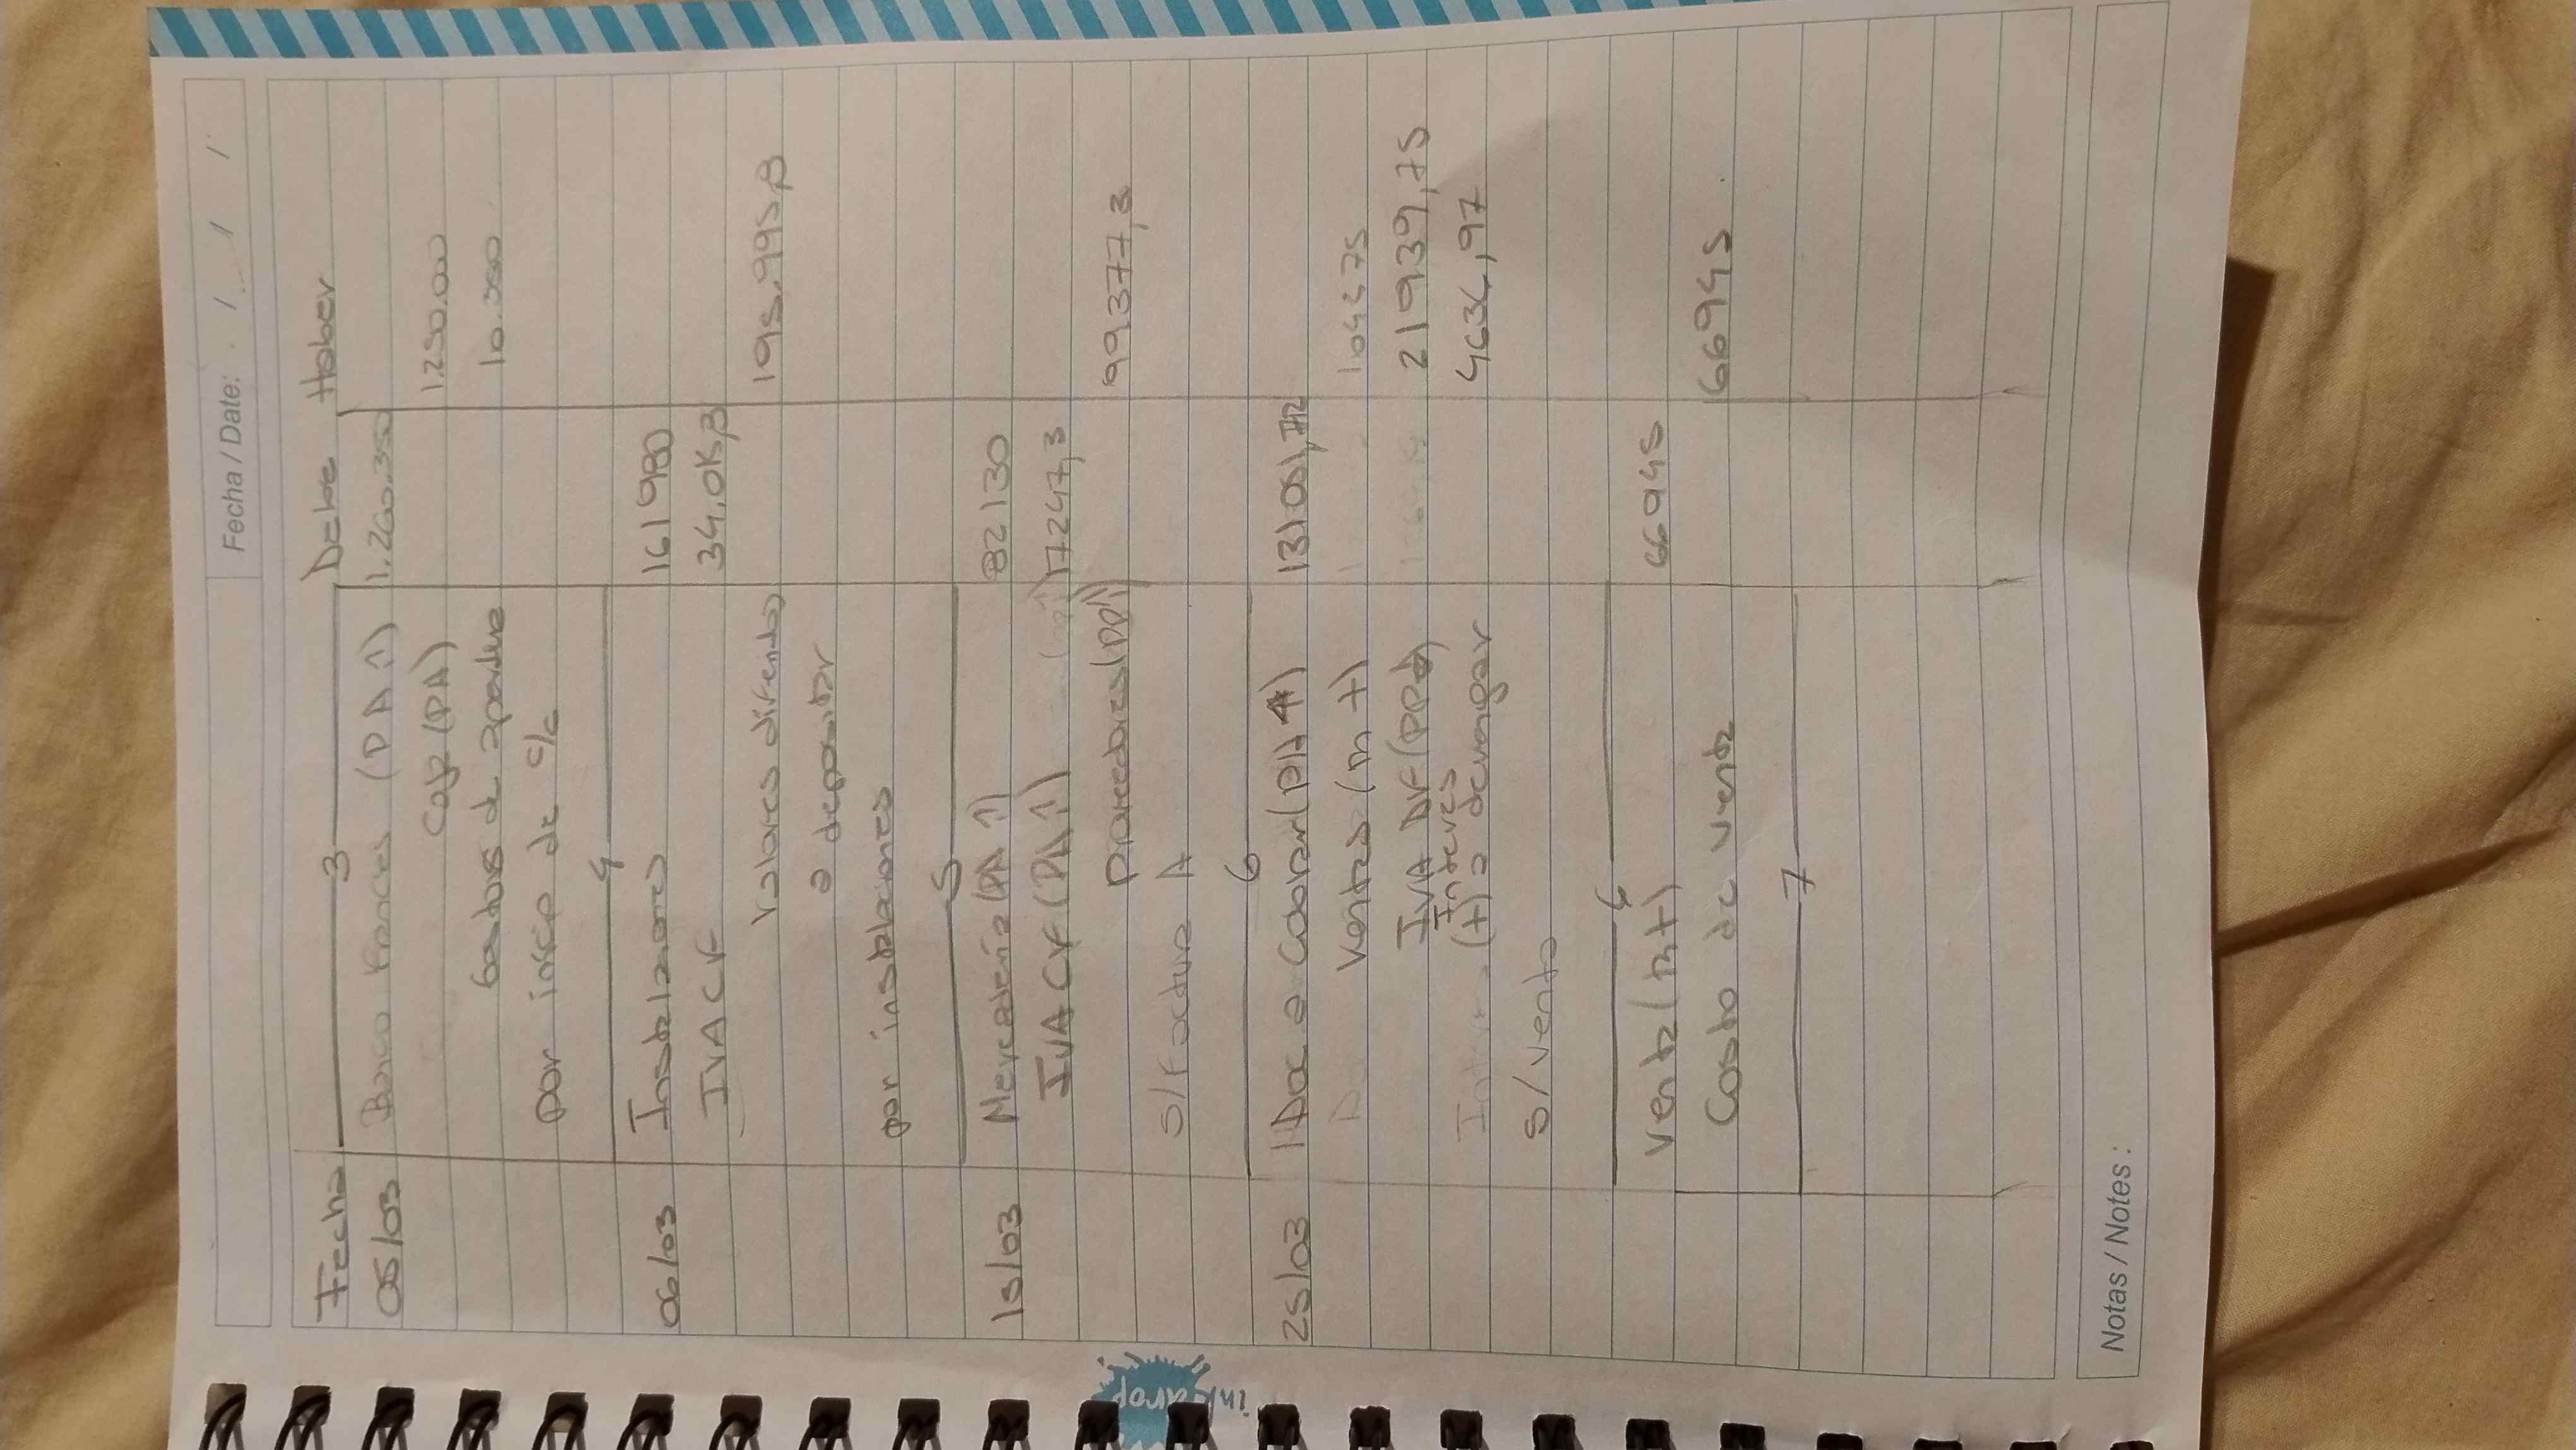 Fecha / Date:
Fecha Debe Haber
3
05/03 Banco Frances (PA↑) 1.260.350
Caja (PA) 1.250.000
Gastos de 10.350
por de c/c
4
06/03 Instalaciones 161980
IVA CF
Valores diferidos 195.995,8
a depositar
por instalaciones
5
15/03 Mercadería (PA↑) 82130
IVA CF (PA↑) 17247,3
Proveedores (PP↑) 99377,3
S/Factura A
6
25/03 Doc a Cobrar (PA+)
Ventas (m+) 104475
IVA DF (PP+) 21939,75
Interes
(+) a devengar 4634,97
S/venta
6
Venta (m+) 66945
Costo de venta 66945
7
Notas / Notes :
inkdrop